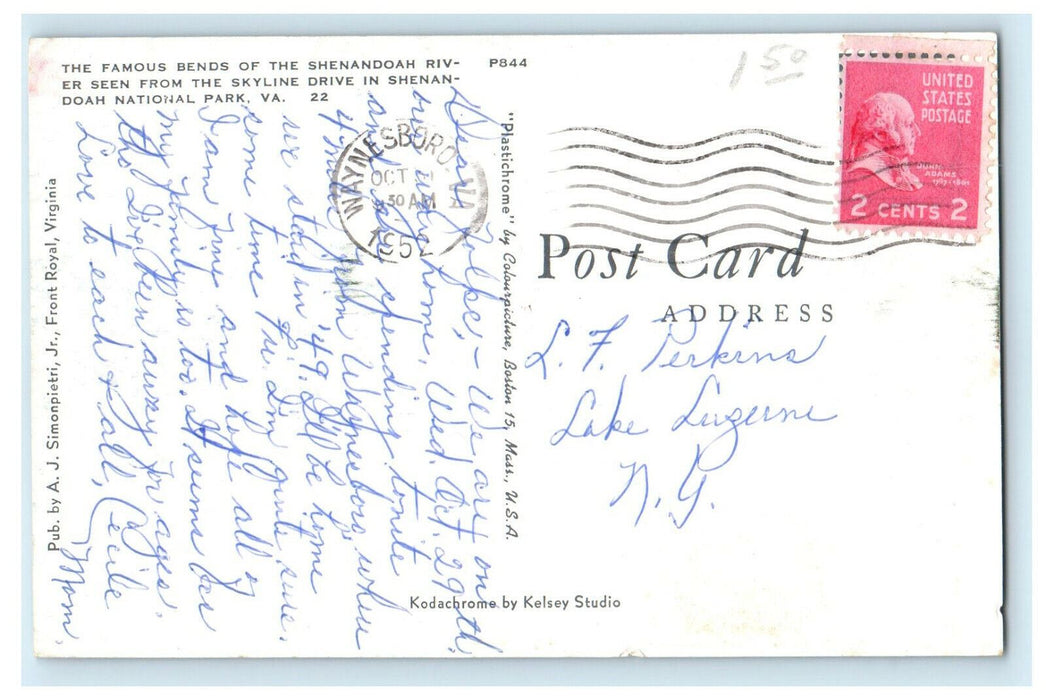 THE FAMOUS BENDS OF THE SHENANDOAH RIV-
ER SEEN FROM THE SKYLINE DRIVE IN SHENAN-
DOAH NATIONAL PARK, VA. 22
P844
Dear Folks, - We are on
our way home, Wed. Oct. 29th.
and are spending tonite
4 mi. from Waynesboro, where
we staid in '49. I'll be home
some time Fri. I'm quite sure.
I am fine and hope all of
my family is too. It seems
tho I've been away for ages.
Love to each & all, Cecile
Mom.
Pub. by A. J. Simonpietri, Jr., Front Royal, Virginia
"Plastichrome" by Colourpicture, Boston 15, Mass., U.S.A.
Kodachrome by Kelsey Studio
WAYNESBORO VA
OCT
30 AM
1952
1 50
UNITED
STATES
POSTAGE
JOHN
ADAMS
2 CENTS 2
Post Card
ADDRESS
L. F. Perkins
Lake Luzerne
N.Y.